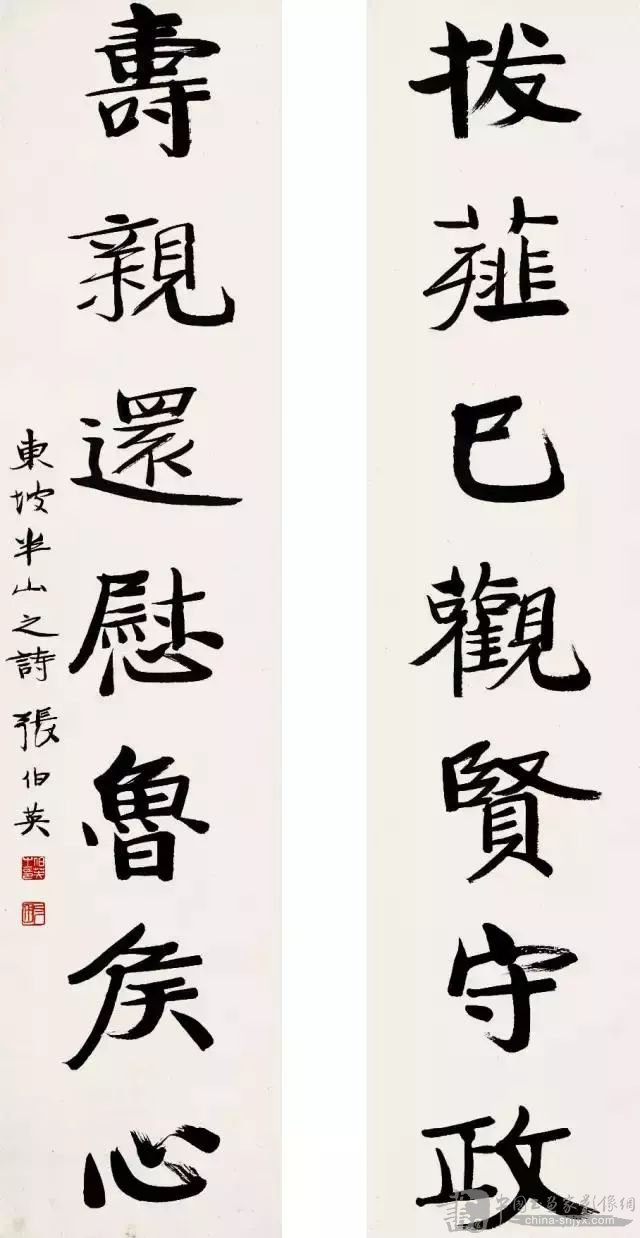 拔薤已觀賢守政
壽親還慰魯侯心
東坡半山之詩 張伯英
中国书画家影像網
china-shjyx.com